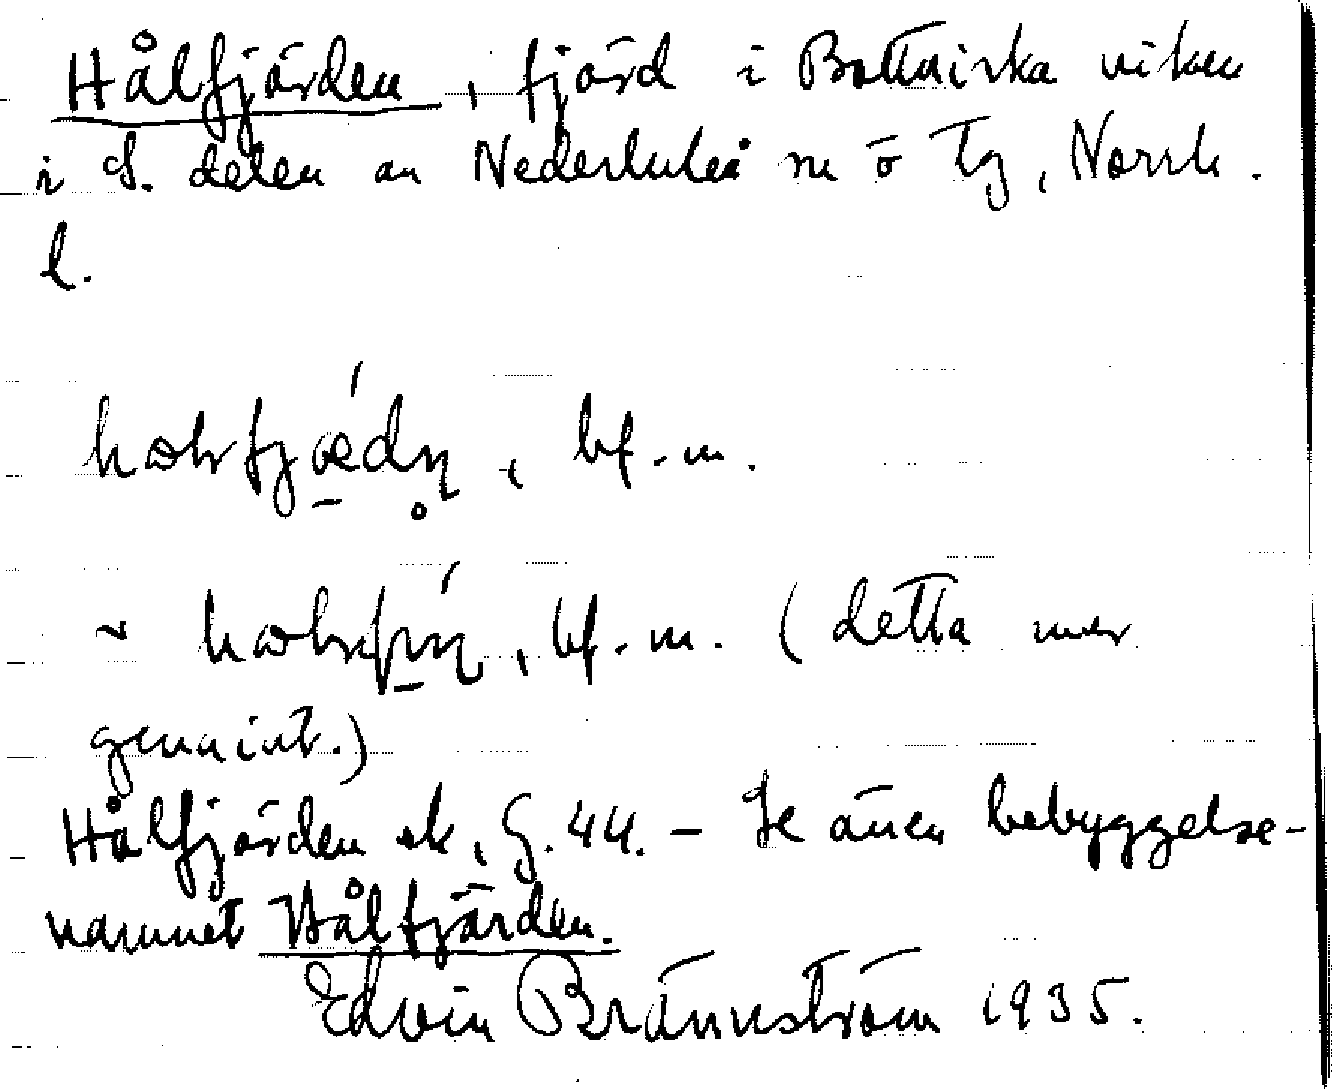 Hålfjärden, fjärd i Bottniska viken
i S. delen av Nederluleå sn o tg, Norrb.
l.
, bf. m.
~ , bf. m. (detta mer
genuint.)
Hålfjärden ek, G. 44. – Se även bebyggelse-
namnet Hålfjärden.
Edvin Brännström 1935.